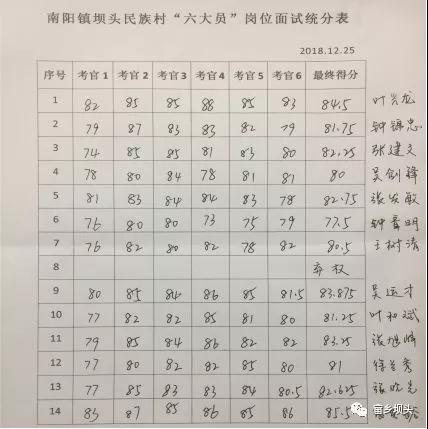 南阳镇坝头民族村“六大员”岗位面试统分表
2018.12.25
序号 考官1 考官2 考官3 考官4 考官5 考官6 最终得分
1 82 85 85 88 85 83 84.5 叶兴龙
2 79 87 83 83 82 79 81.75 钟锦忠
3 74 85 85 81 83 80 82.25 张建文
4 78 80 84 78 81 81 80 吴剑锋
5 81 83 84 84 83 78 82.75 张发敏
6 76 80 80 73 75 79 77.5 钟 明
7 76 82 80 82 78 82 80.5 王树清
8 弃权
9 80 85 84 86 85 81.5 83.875 吴运才
10 77 82 82 85 81 80 81.25 叶和斌
11 79 85 84 86 82 82 83.25 张旭峰
12 77 80 82 82 85 80 81 徐兰秀
13 77 85 83 83 84 80.5 82.625 张 先
14 83 87 85 86 85 86 85.5
富乡坝头